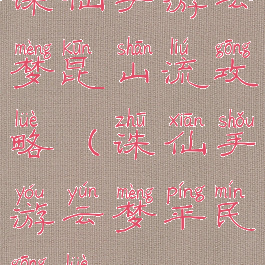 诛仙手游云
mèng kūn shān liú gōng
梦昆山流攻
lüè zhū xiān shǒu
略(诛仙手
yóu yún mèng píng mín
游云梦平民
gōng lüè